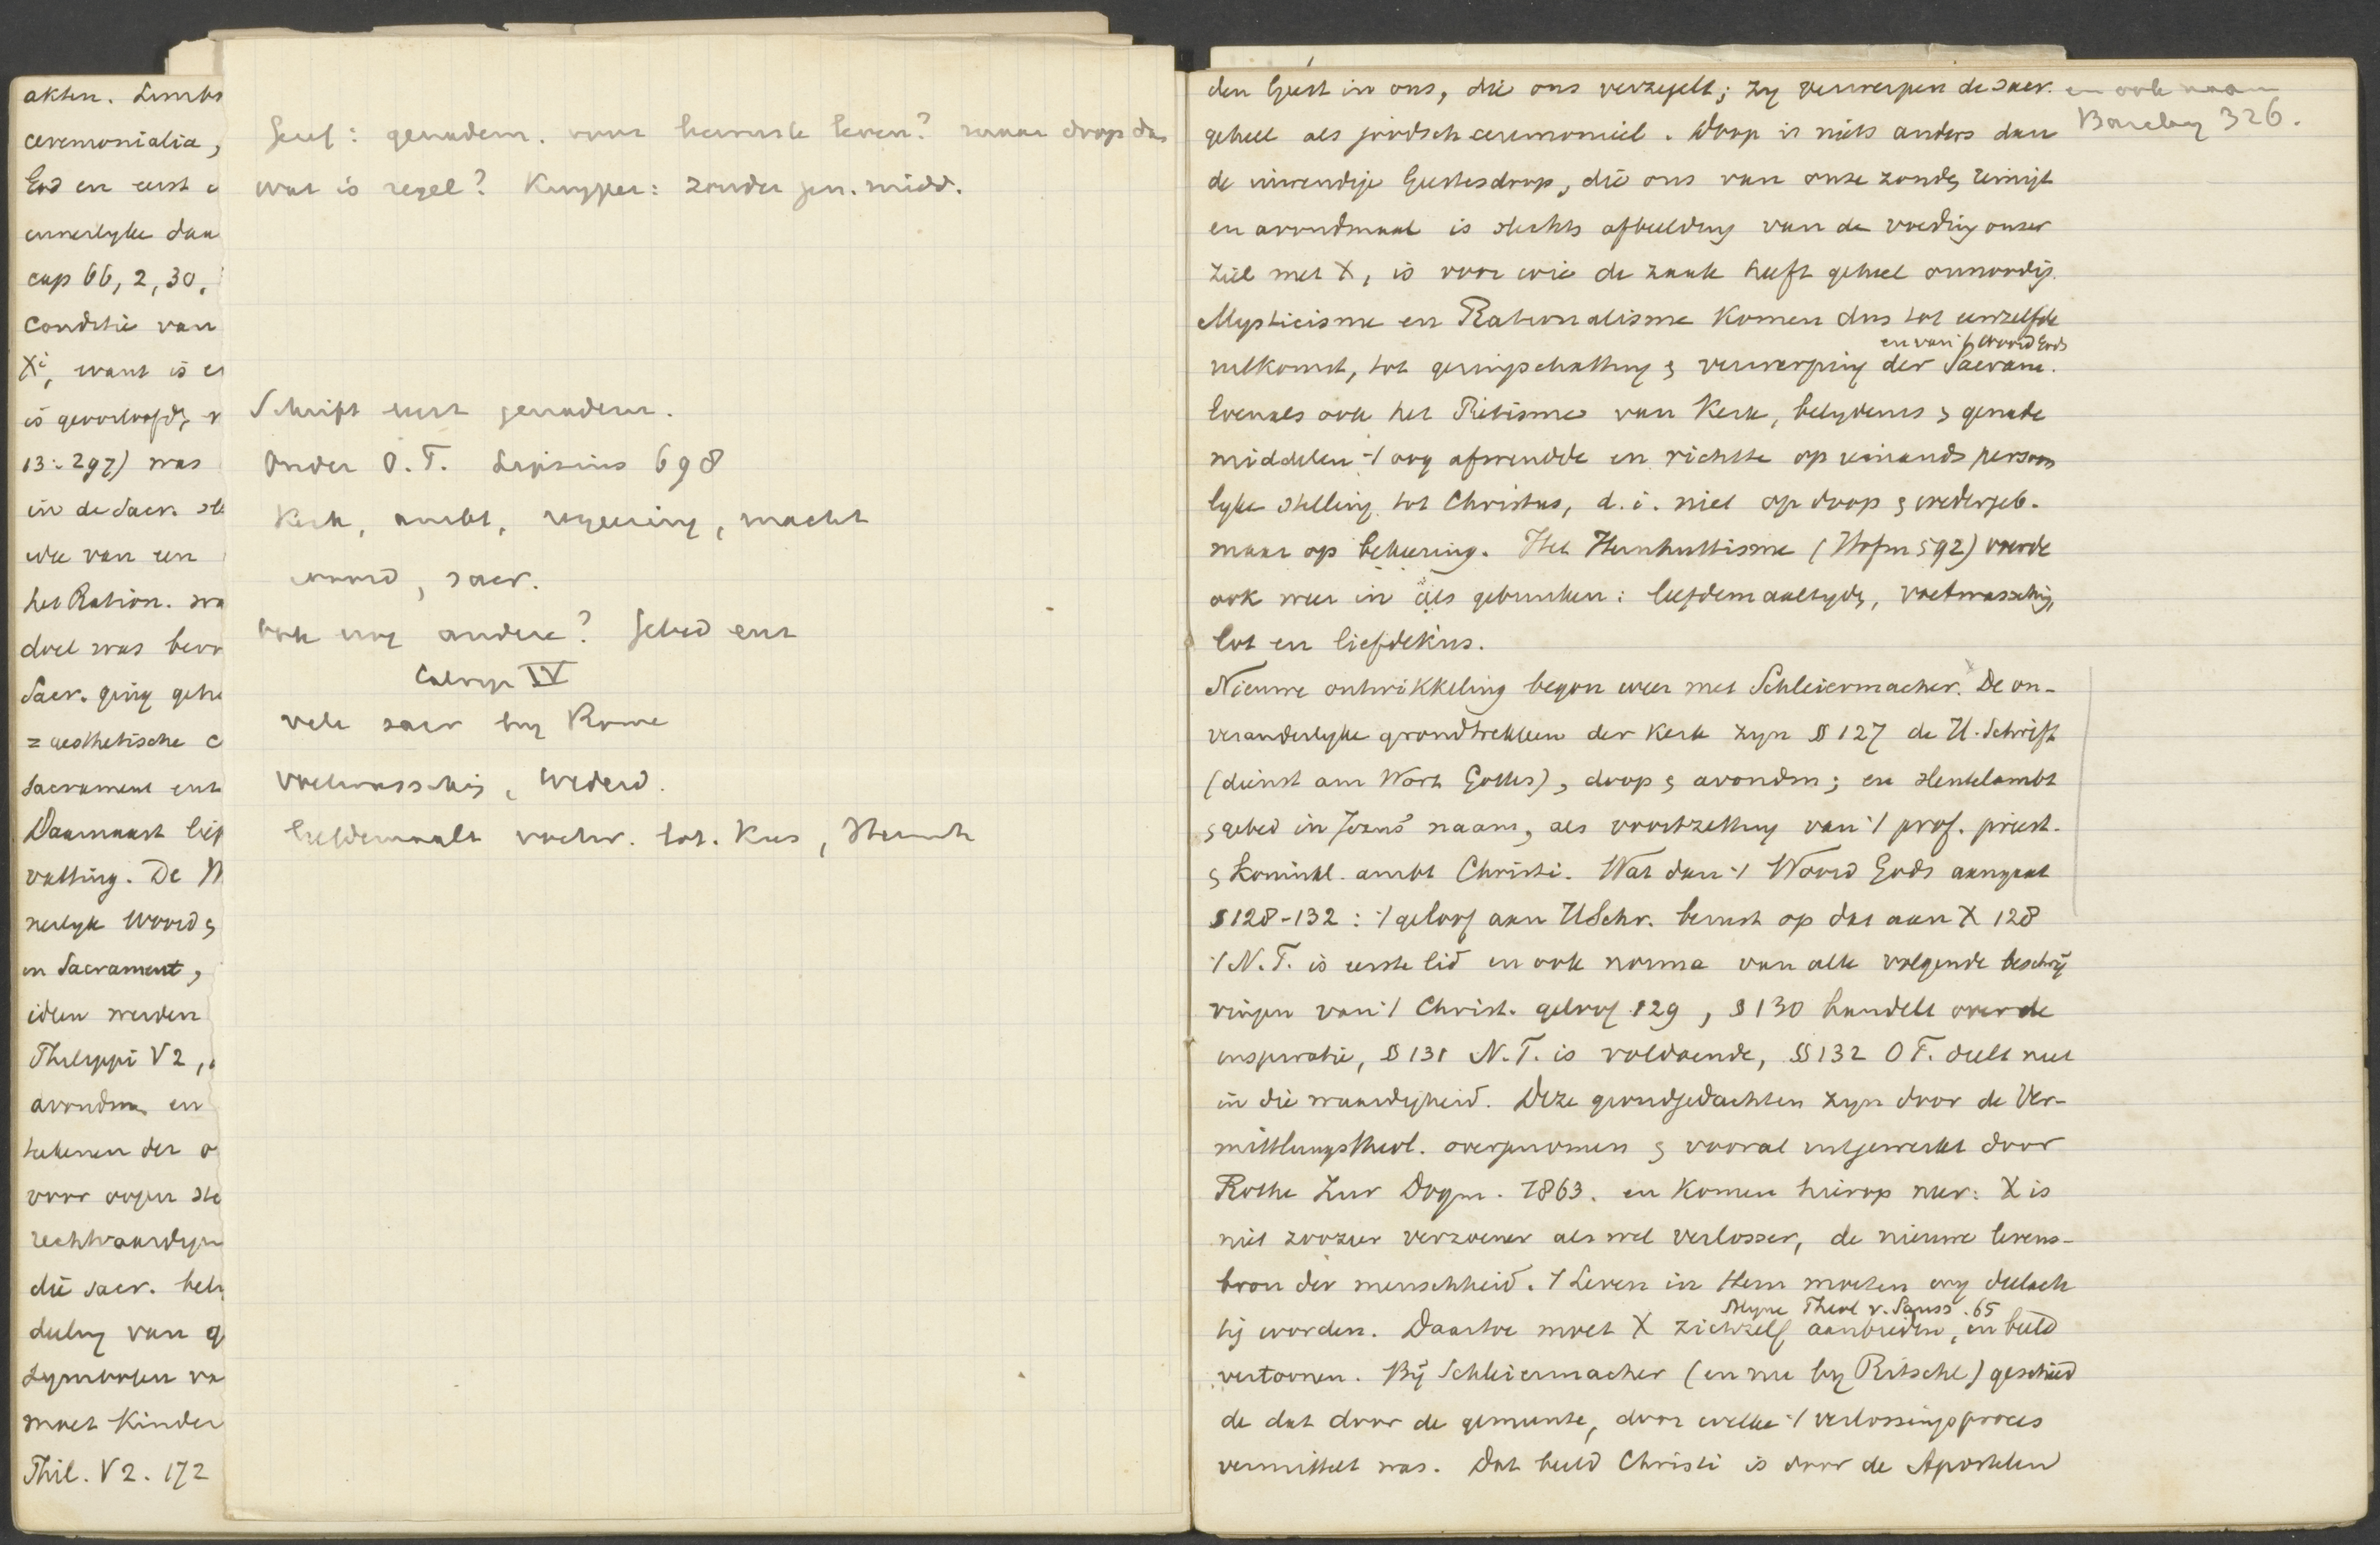 akten. Limbo
ceremonialia,
God en eerst
innerlyke daa
cap 66, 2, 30,
conditie van
Xi, want is e
is geoorloofd,
13:297) was
in de Sacr. sl
wee van een
het Ration. wa
doel was bevo
Sacr. ging gehe
= aesthetische c
sacrament ent
Daarnaast liep
vatting. De M
nerlyk Woord &
en Sacrament,
ideen werden
Philippi V 2,
avondm. en
teekenen der
voor oogen ste
rechtvaardigen
die sacr. bel
deeling van g
Symbolen va
moet kinder
Phil. V 2. 172
Geref: genadem. voor bewuste leven? maar doop dan
wat is regel? Kuyper: zonder gen. midd.
Schrift eerst genadem.
Onder O. T. Leipsius 698
Kerk, ambt, regeering, macht
woord, sacr.
ook nog andere? Gebed enz
Calvyn IV
vele sacr by Rome
voetwassching, wederd.
liefdemaalt voetw. lot. Kus, Hernh
den Geest in ons, die ons verzegelt; zy verwerpen de sacr. en ook naam
geheel als joodsch ceremonieel. Doop is niets anders dan Barclay 326.
de inwendige Geestesdoop, die ons van onze zonde reinigt
en avondmaal is slechts afbeelding van de voeding onzer
ziel met X, is voor wie de zaak heeft geheel onnoodig.
Mysticisme en Rationalisme komen dus tot eenzelfde
en van 't Woord Gods
uitkomst, tot geringschatting & verwerping der Sacram.
Evenals ook het Piëtisme van Kerk, belydenis & genade
middelen 't oog afwendde en richtte op iemands persoon
lyke stelling tot Christus, d. i. niet op doop & wedergeb.
maar op bekeering. Het Hernhuttisme (Hofm 592) voerde
ook weer in als gebruiken: liefdemaaltyd, voetwassching,
lot en liefdekus.
Nieuwe ontwikkeling begon weer met Schleiermacher. De on-
veranderlyke grondtrekken der Kerk zyn § 127 de H. Schrift
(dienst am Wort Gottes), doop & avondm; en sleutelambt
& gebed in Jezus' naam, als voortzetting van 't prof. priest.
& koninkl. ambt Christi. Wat dan 't Woord Gods aangaat
§ 128-132: 't geloof aan H Schr. berust op dat aan X 128
't N. T. is eerste lid en ook norma van alle volgende beschrij
vingen van 't Christ. geloof 129, § 130 handelt over de
inspiratie, § 131 N. T. is voldoende, § 132 O T. deelt niet
in die waardigheid. Deze grondgedachten zyn door de Ver-
mittlungstheol. overgenomen & vooral uitgewerkt door
Rothe Zur Dogm. 1863. en komen hierop neer: X is
niet zoozeer verzoener als wel verlosser, de nieuwe levens-
bron der menschheid. 't Leven in Hem moeten wy deelach
Myne Theol v. Sauss. 65
tig worden. Daartoe moet X zichzelf aanbieden, in beeld
vertoonen. Bij Schleiermacher (en nu by Ritschl) geschied
de dat door de gemeente, door welke 't verlossingsproces
vermittelt was. Dat beeld Christi is door de Apostelen